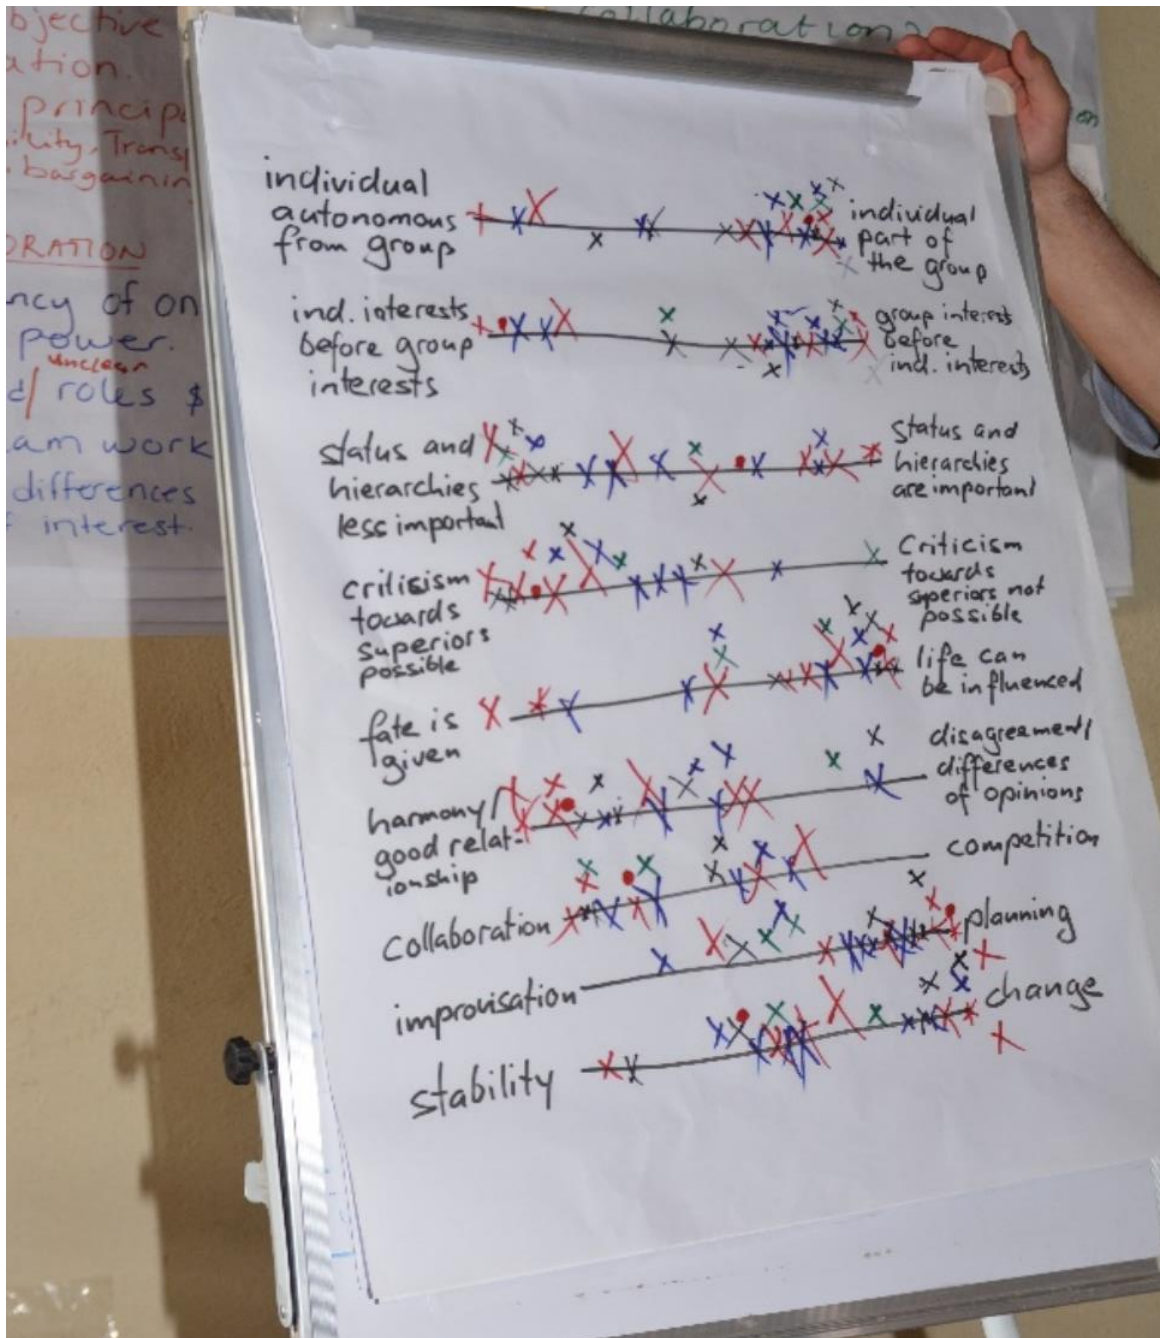 objective
ation.
princip
ility, Transp
bargainin
ORATION
ncy of on
power.
unclear
d/ roles $
am work
differences
f interest.
collaboration?
on
individual
autonomous
from group
individual
part of
the group
ind. interests
before group
interests
group interests
before
ind. interests
status and
hierarchies
less important
Status and
hierarchies
are important
critisism
towards
superiors
possible
Criticism
towards
superiors not
possible
fate is
given
life can
be influenced
harmony/
good relat-
ionship
disagreement/
differences
of opinions
collaboration
competition
improvisation
planning
stability
change